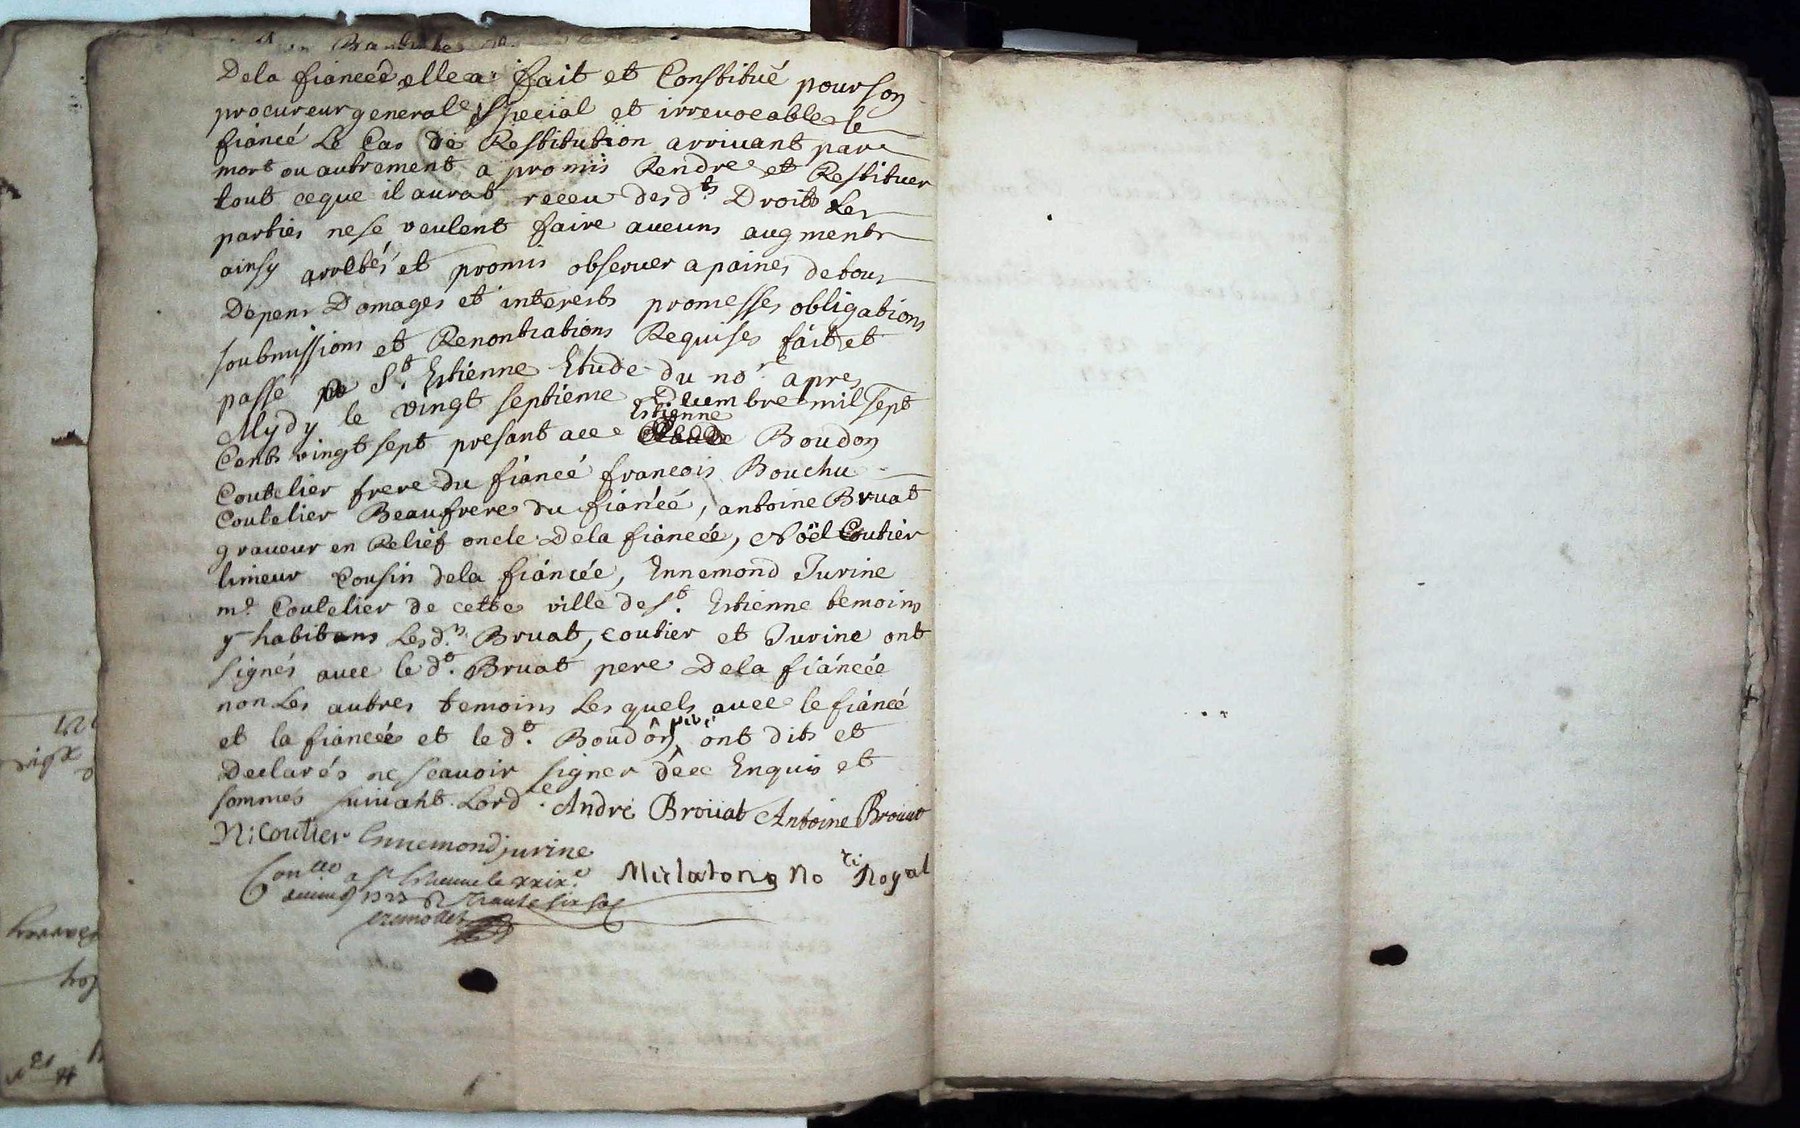 De la fiancée elle a fait et Constitué pour son
procureur general special et irrevocable le
fiancé Le Cas de Restitution arrivant par
mort ou autrement a promis Rendre et Restituer
tout ce que il aurat receu des d.ts Droits Les
parties ne se veulent faire aucuns augments
ainsy arrestés et promis observer a paines de tous
Depens Domages et interests promesses obligations
soubmissions et Renontiations Requises fait et
passé St. Estienne Etude du no.re apres
Mydy le vingt septieme decembre mil sept
Cents vingt sept presant avec Estienne Boudon
Coutelier frere du fiancé francois Bouchu
Coutelier Beaufrere du fiancé, antoine Bruat
graveur en Relief oncle De la fiancée, Noël Coutier
limeur Cousin de la fiancée, Ennemond Jurine
m.e Coutelier de cette ville de St. Estienne temoins
y habitans Les d.ts Bruat, coutier et Jurine ont
signés avec le d.t Bruat pere De la fiancée
non Les autres temoins Les quels avec le fiancé
et la fiancée et le d.t Boudon pere ont dits et
Declarés ne scavoir signer de ce Enquis et
sommés suivant Lord.ce André Brouat Antoine Brouat
N: Coutier Ennemond jurine
Con.llé a St. Estienne le xxix.e Mulaton No.re Royal
1727 Trante six sols